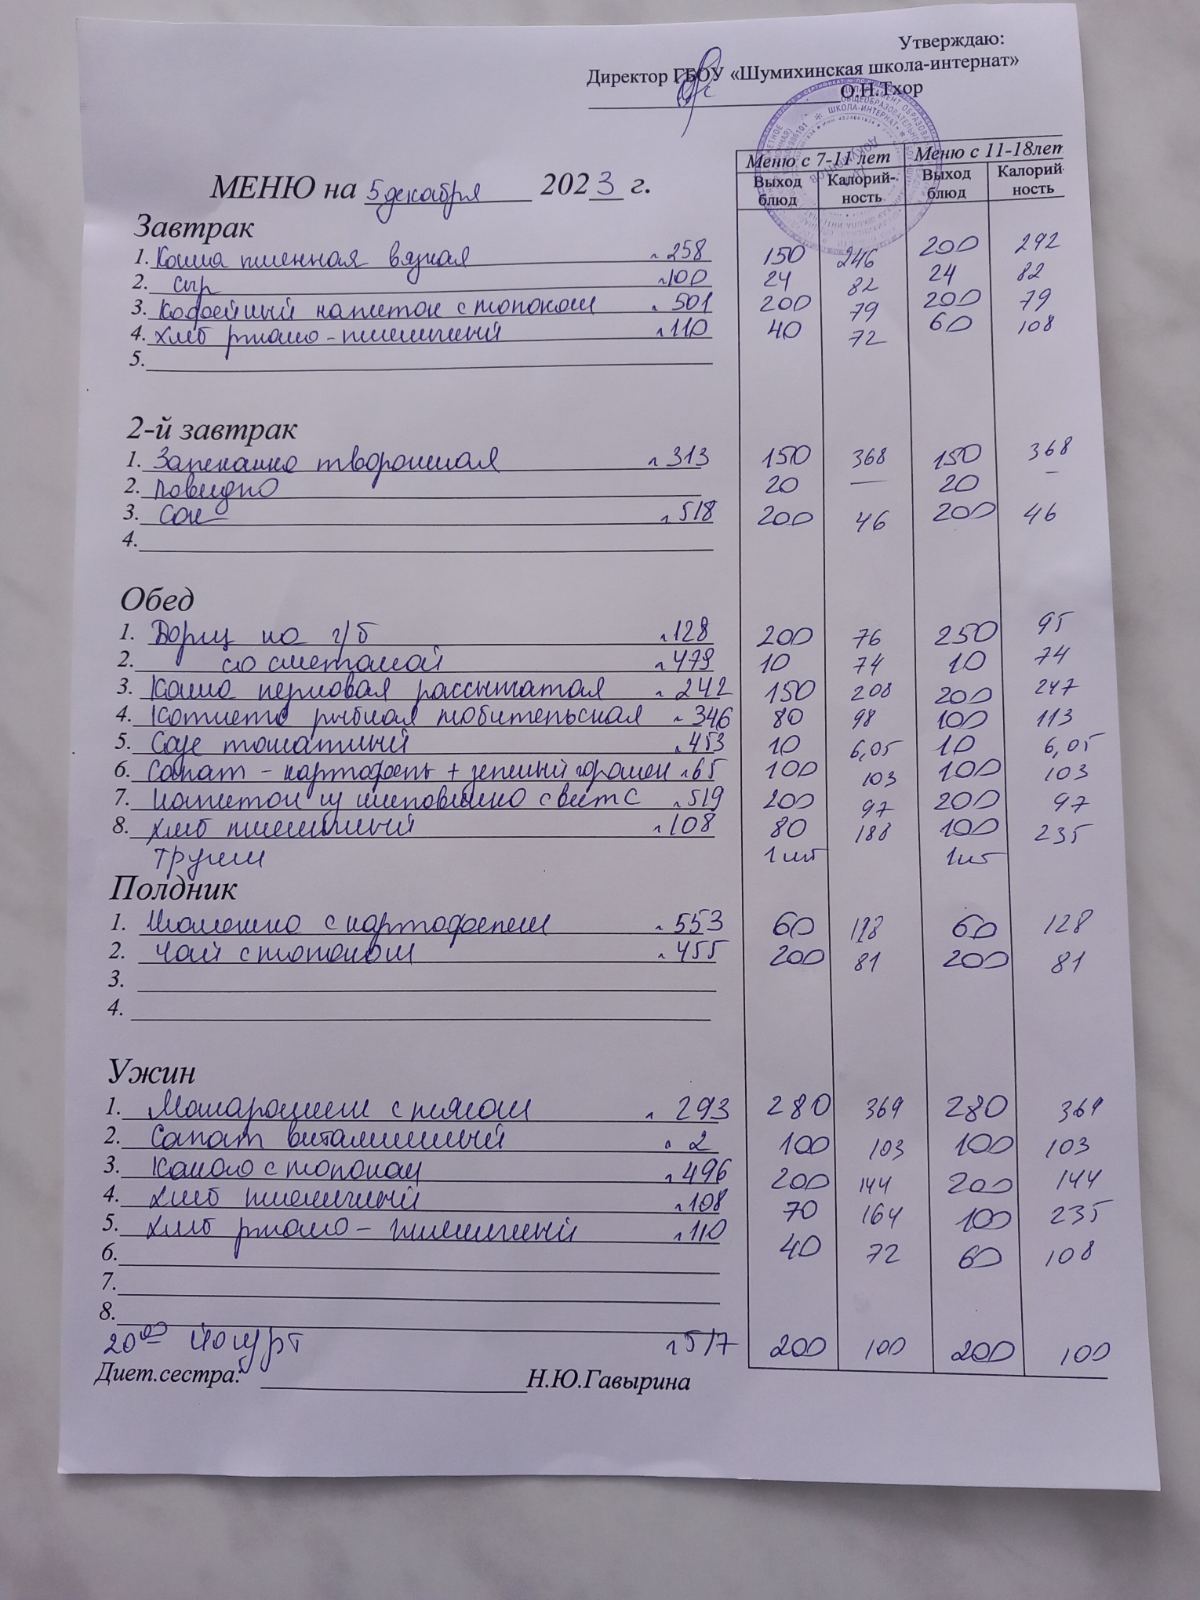 Утверждаю:
Директор ГБОУ «Шумихинская школа-интернат»
О.Н.Тхор
Меню с 7-11 лет Меню с 11-18лет
Выход блюд Калорий-ность Выход блюд Калорий ность
МЕНЮ на 5 декабря 2023 г.
Завтрак
1. Каша пшенная вязкая л 258 150 246 200 292
2. сыр л100 24 82 24 82
3. Кофейный напиток с молоком л 501 200 79 200 79
4. хлеб ржано-пшеничный л110 40 72 60 108
5.
2-й завтрак
1. Запеканка творожная л 313 150 368 150 368
2. повидло 20 — 20 —
3. сок л 518 200 46 200 46
4.
Обед
1. Борщ на г/б л128 200 76 250 95
2. со сметаной л479 10 74 10 74
3. Каша перловая рассыпчатая л 242 150 208 200 247
4. Котлета рыбная любительская л 346 80 98 100 113
5. Соус томатный л453 10 6,05 10 6,05
6. Салат - картофель + зеленый горошек л65 100 103 100 103
7. напиток из шиповника с вит С л519 200 97 200 97
8. хлеб пшеничный л108 80 188 100 235
1 шт 1 шт
Полдник
1. с картофелем л 553 60 128 60 128
2. Чай с молоком л 455 200 81 200 81
3.
4.
Ужин
1. Макароники с мясом л 293 280 369 280 369
2. Салат витаминный л 2 100 103 100 103
3. Какао с молоком л496 200 144 200 144
4. хлеб пшеничный л108 70 164 100 235
5. хлеб ржано-пшеничный л110 40 72 60 108
6.
7.
8.
20⁰⁰ йогурт л517 200 100 200 100
Диет.сестра: Н.Ю.Гавырина